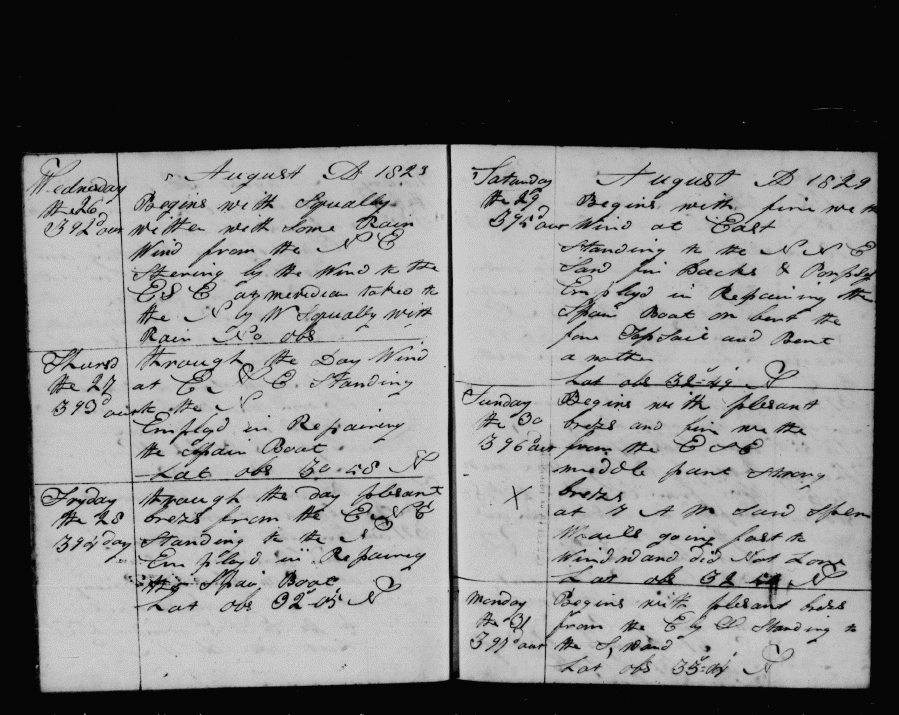 August AD 1823
Wednesday
the 26
392d out
Begins with Squally
wether with Some Rain
Wind from the N E
Stering by the Wind to the
E S E at meridian taked to
the N by W Squally with
Rain No obs
Thursd
the 27
393d out
through the Day Wind
at E N E Standing
to the N
Employd in Repairing
the Spair Boat
Lat obs 30-58 N
Fryday
the 28
394 day
through the day plesant
brezs from the E N E
Standing to the N
Employd in Repairing
the Spair Boat
Lat obs 32-05 N
August AD 1829
Saturday
the 29
395d out
Begins with fin weth
Wind at East
Standing to the N N E
Sand fin Backs &
Employd in Repairing the
Spair Boat on bent the
fore Top Sail and Bent
a nother
Lat obs 32-49 N
Sunday
the 30
396d out
X
Begins with plesant
brezs and fin wethe
from the E S E
middle part Strong
brezs
at 7 A M Saw Sperm
Whails going fast to
Windward did Not Lower
Lat obs 32 N
Monday
the 31
397d out
Begins with plesant brezs
from the E by S Standing to
the S, ward
Lat obs 33- N